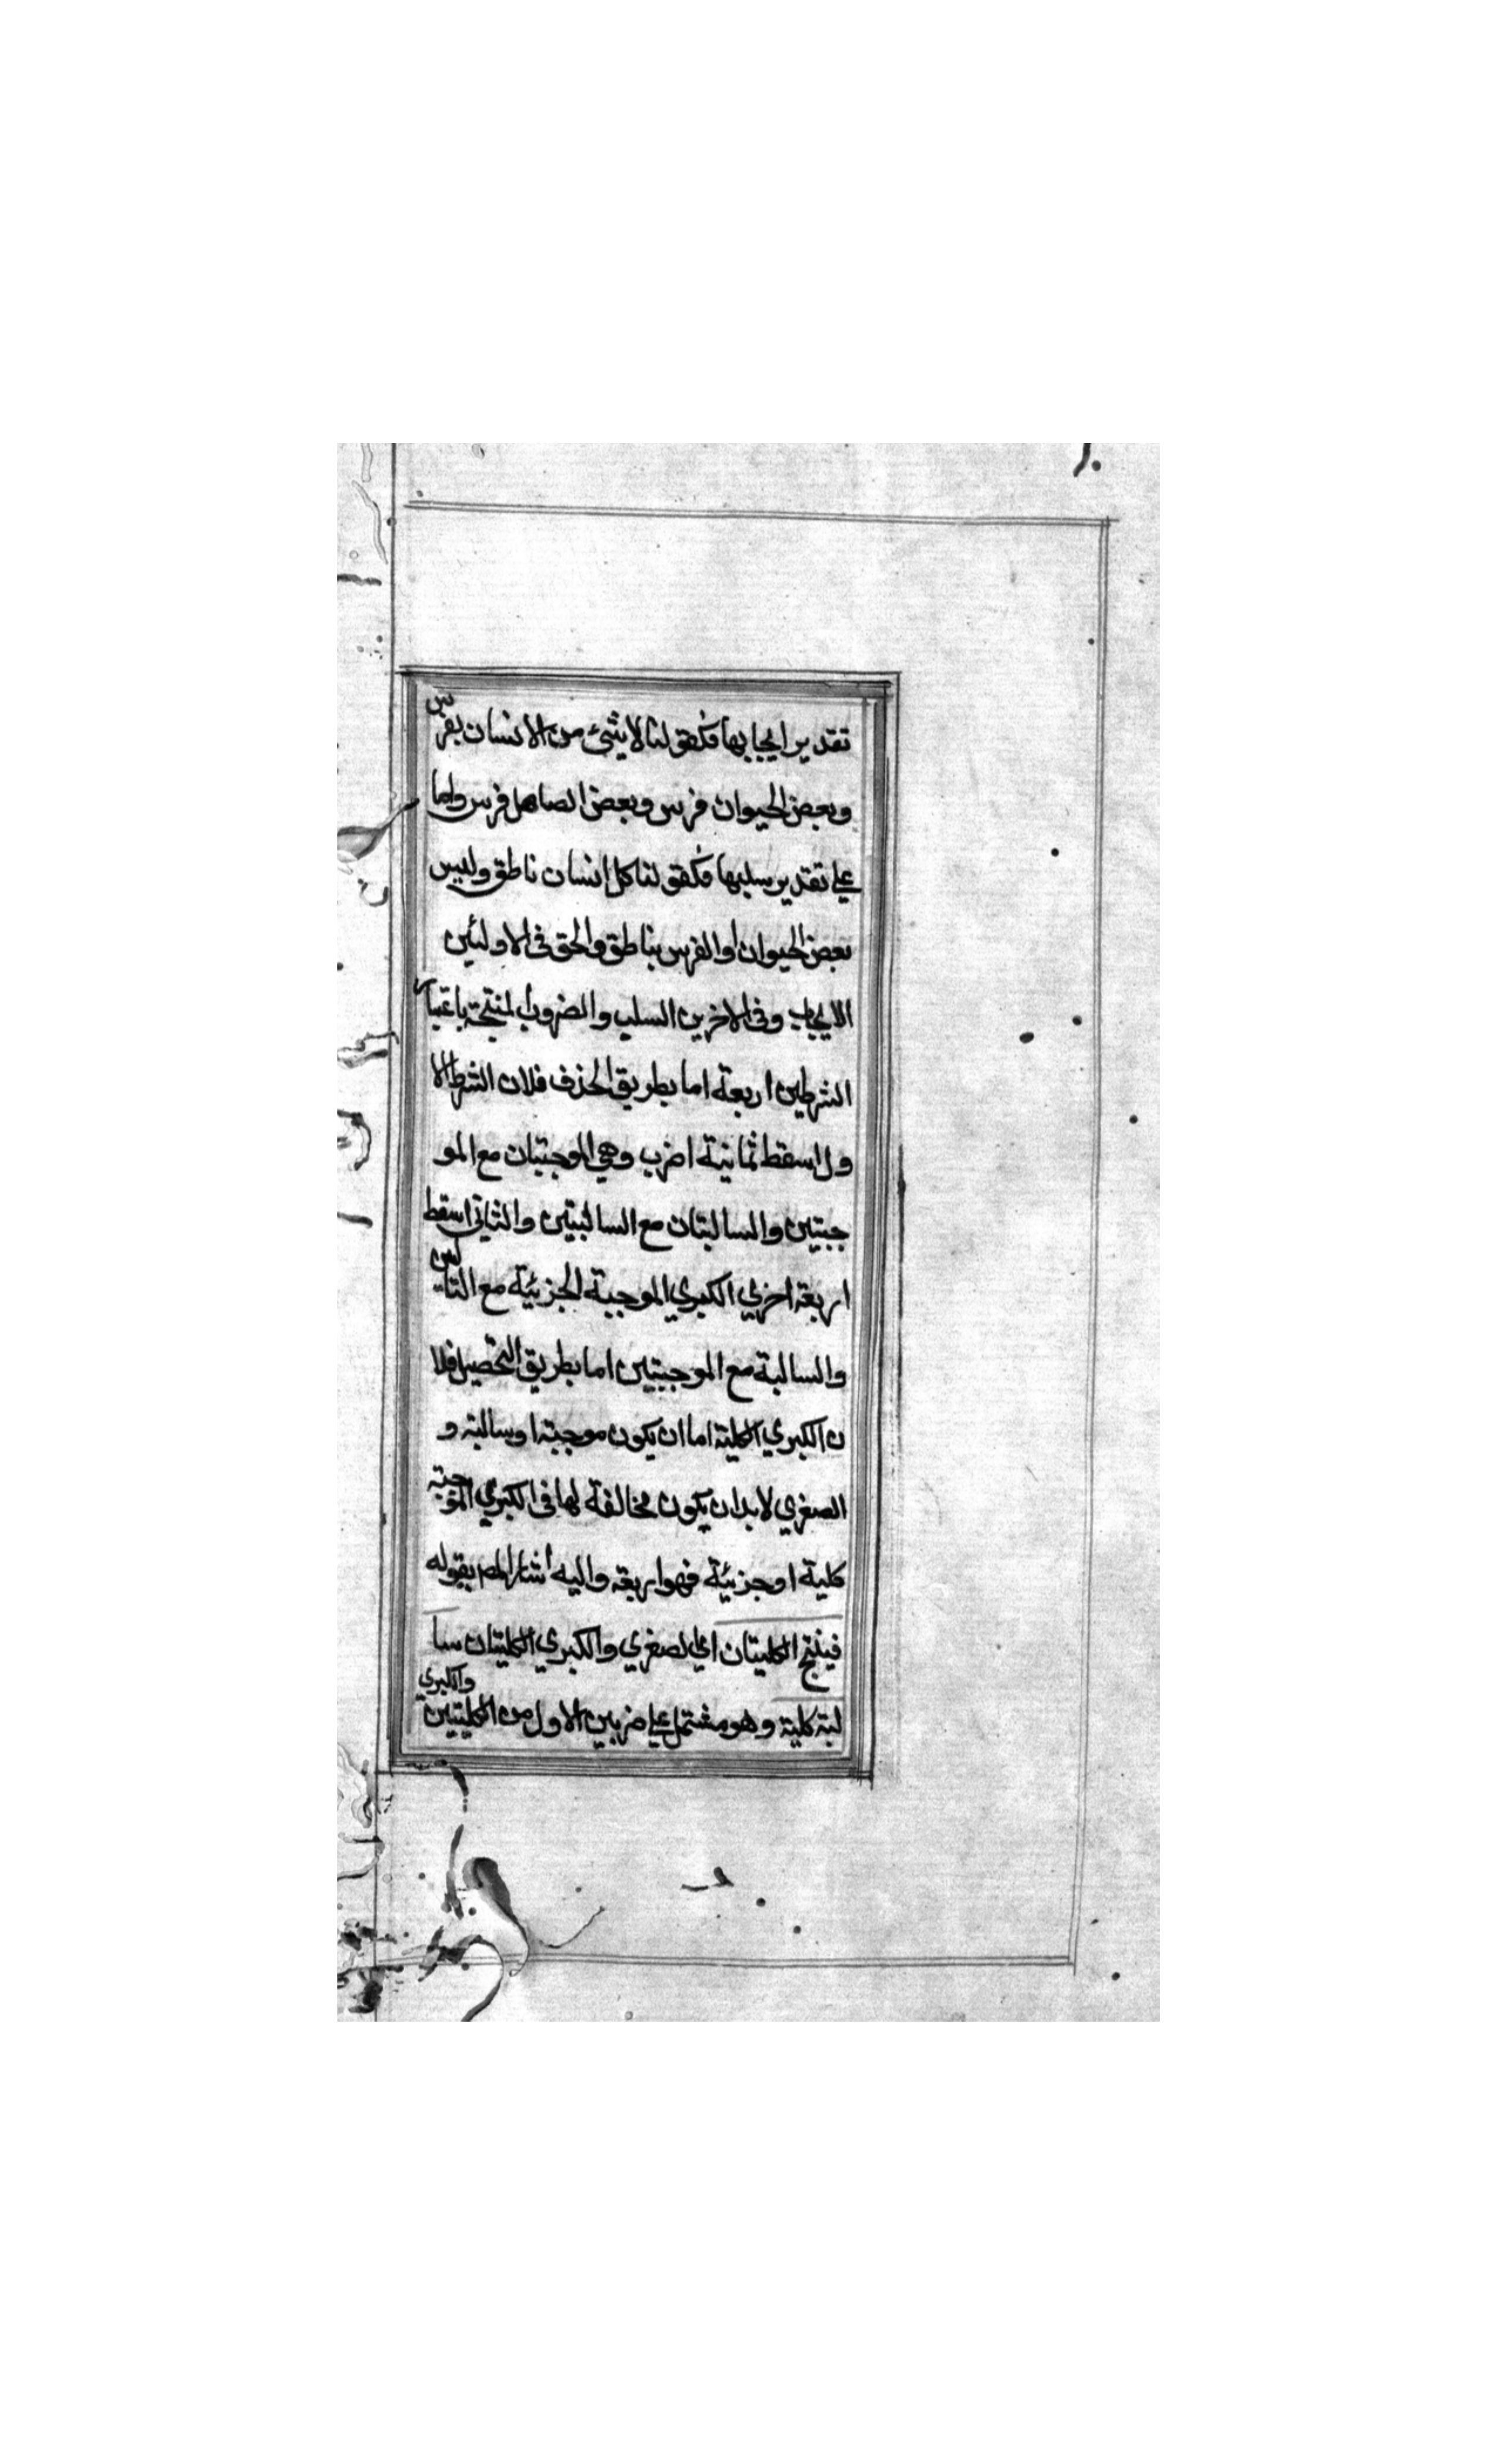 تقدير ايجابها فكقولنا لا شئ من الانسان بفرس
وبعض الحيوان فرس وبعض الصاهل فرس واما
علي تقدير سلبها فكقولنا كل انسان ناطق وليس
بعض الحيوان او الفرس بناطق والحق في الاوليين
الايجاب وفي الاخرين السلب والضروب المنتجة باعتبار
الشرطين اربعة اما بطريق الحذف فلان الشرط الا
ول اسقط ثمانية اضرب وهي الموجبتان مع المو
جبتين والسالبتان مع السالبتين والثاني اسقط
اربعة اخري الكبري الموجبة الجزئية مع السالبتين
والسالبة مع الموجبتين اما بطريق التحصيل فلا
ن الكبري الكلية اما ان يكون موجبة او سالبة و
الصغري لا بد ان يكون مخالفة لها في الكبري الموجبة
كلية او جزئية فهو اربعة واليه اشار المص بقوله
فينتج الكليتان اي الصغري والكبري الكليتان سا
لبة كلية وهو مشتمل علي ضربين الاول من الكليتين والكبري